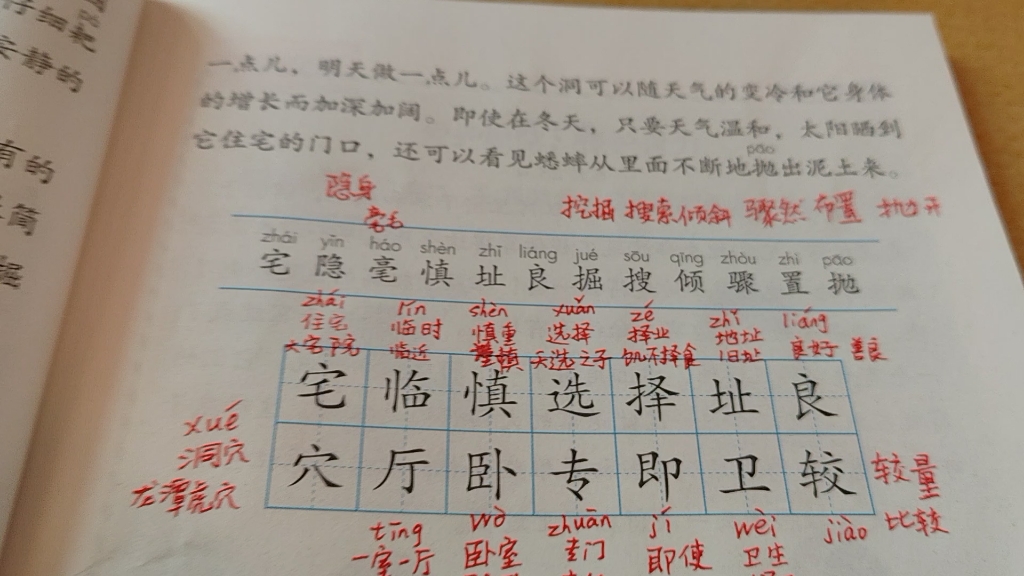 仔细耙
安静的
有的
简
掘
一点儿，明天做一点儿。这个洞可以随天气的变冷和它身体
的增长而加深加阔。即使在冬天，只要天气温和，太阳晒到
pāo
它住宅的门口，还可以看见蟋蟀从里面不断地抛出泥土来。
隐身 挖掘 搜索 倾斜 骤然 布置 抛开
毫毛
zhái yǐn háo shèn zhǐ liáng jué sōu qīng zhòu zhì pāo
宅 隐 毫 慎 址 良 掘 搜 倾 骤 置 抛
zhái lín shèn xuǎn zé zhǐ liáng
住宅 临时 慎重 选择 择业 地址 良好 善良
大宅院 临近 谨慎 天选之子 饥不择食 旧址
宅 临 慎 选 择 址 良
xué
洞穴
龙潭虎穴
穴 厅 卧 专 即 卫 较
较量
比较
tīng wò zhuān jí wèi jiào
一室一厅 卧室 专门 即使 卫生